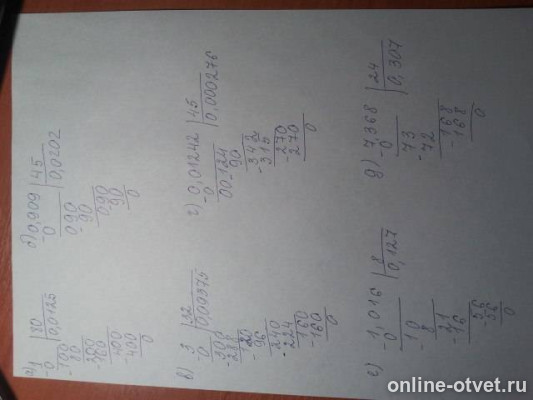 а) 1 |80
-0 |0,0125
-100
80
200
-160
-400
400
0
б) 0,909 |45
-0 |0,0202
090
-90
090
-90
0
в) 3 |32
-0 |0,09375
300
-288
120
-96
240
-224
160
-160
0
г) 0,01242 |45
-0 |0,000276
00124
-90
342
-315
270
-270
0
е) 1,016 |8
-0 |0,127
10
-8
21
-16
56
-56
0
д) 7,368 |24
-0 |0,307
73
-72
168
-168
0
online-otvet.ru